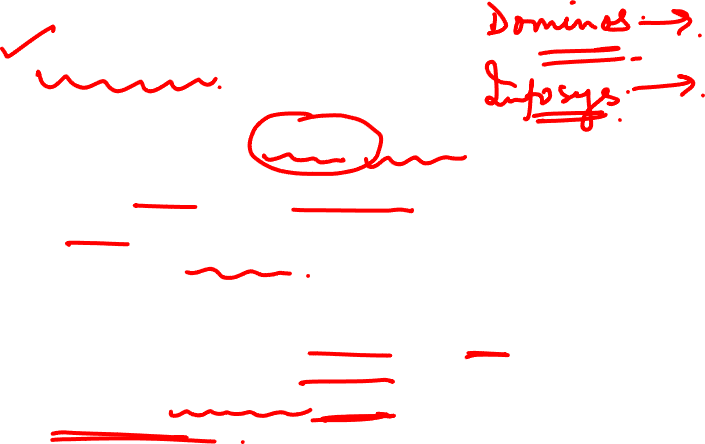 Dominos →
Infosys →